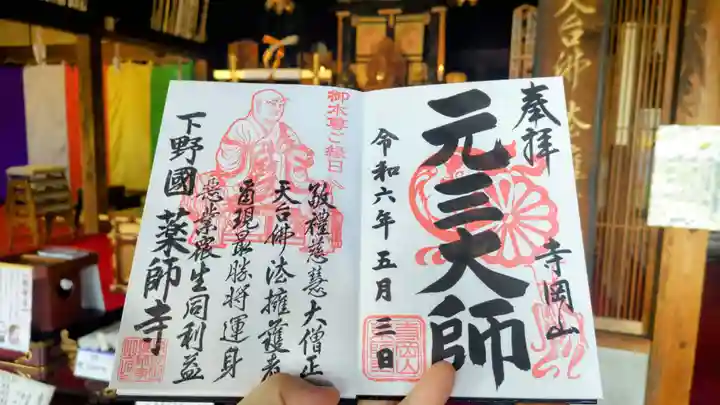 奉拝
寺岡山
元三大師
令和六年五月三日
御本尊ご縁日
敬禮慈慧大僧正
天台佛法擁護者
示現最勝将運身
悪業衆生同利益
下野國薬師寺
天台佛